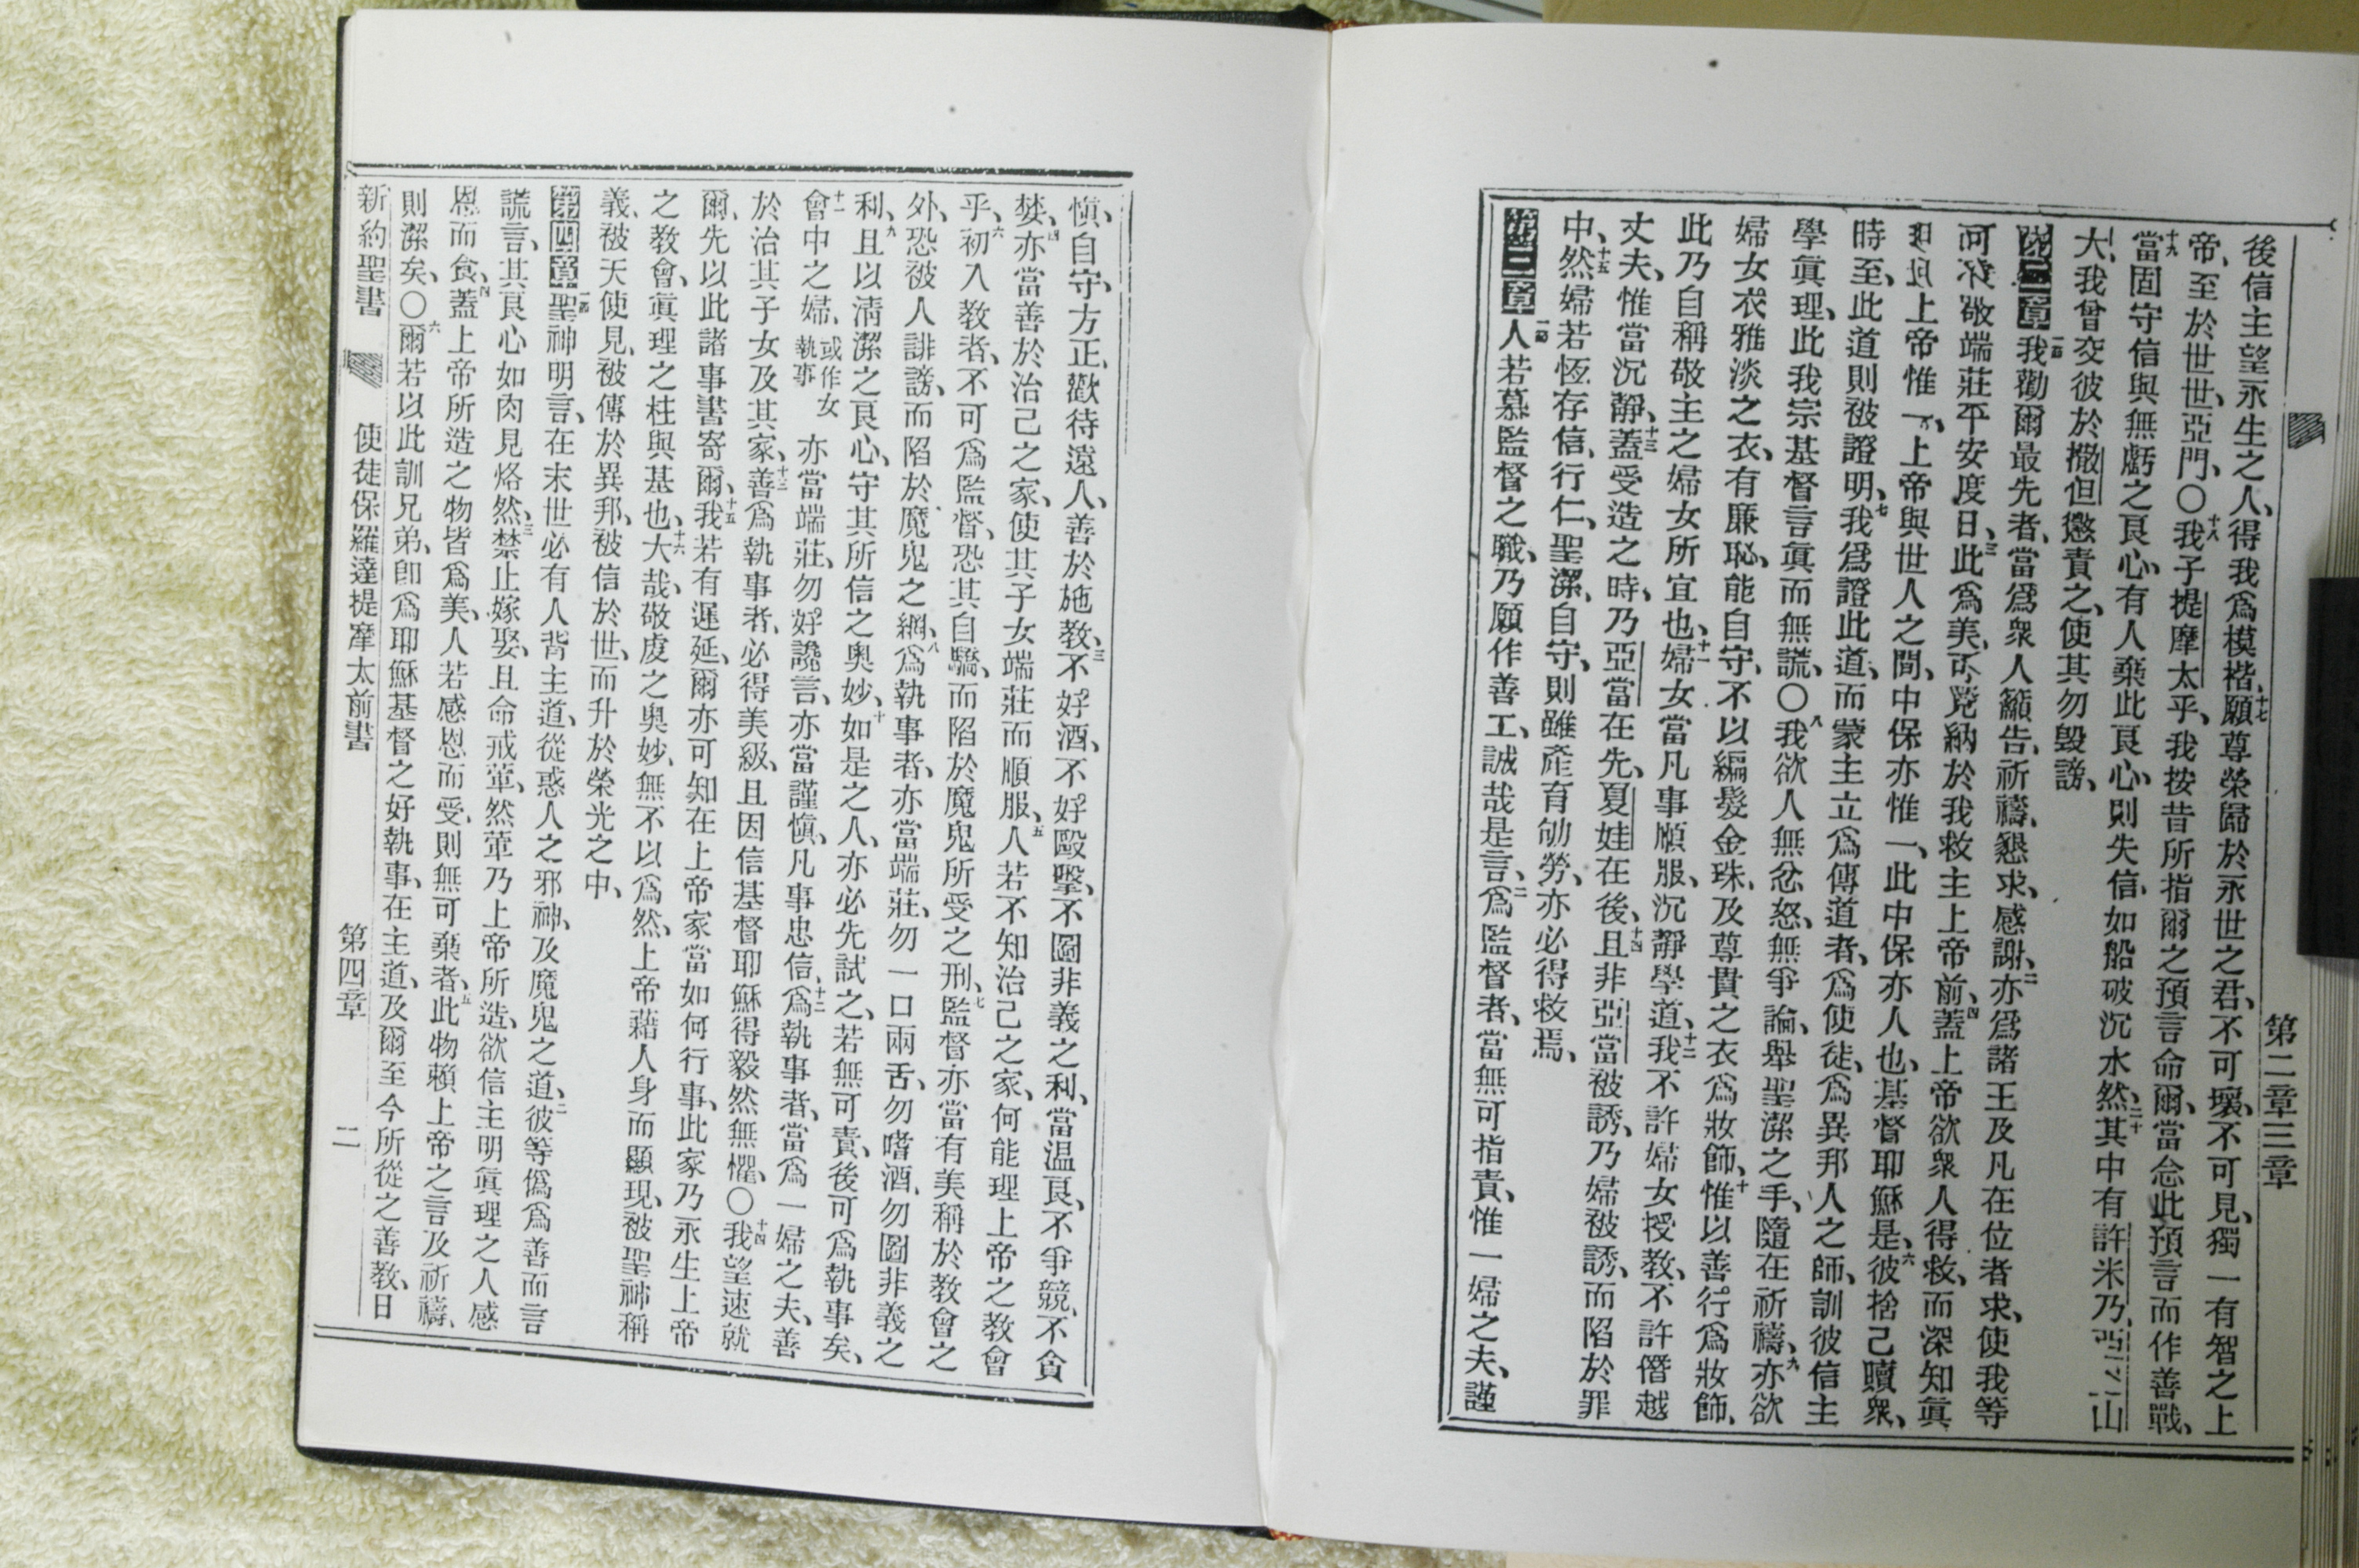 第二章三章
後信主望永生之人、得我爲模楷、十七願尊榮歸於永世之君、不可壞、不可見、獨一有智之上
帝、至於世世、亞門、〇十八我子提摩太乎、我按昔所指爾之預言命爾、當念此預言而作善戰、
十九當固守信與無虧之良心、有人棄此良心、則失信、如船破沉水然、二十其中有許米乃、亞力山
大、我曾交彼於撒但懲責之、使其勿毀謗、
第二章一節我勸爾最先者、當爲衆人籲告、祈禱、懇求、感謝、二亦爲諸王及凡在位者求、使我等
可敬端莊平安度日、三此爲美、可見納於我救主上帝前、四蓋上帝欲衆人得救、而深知眞
上帝惟一、上帝與世人之間、中保亦惟一、此中保亦人也、基督耶穌是、六彼捨己贖衆、
時至、此道則被證明、七我爲證此道、而蒙主立爲傳道者、爲使徒、爲異邦人之師、訓彼信主
學眞理、此我宗基督言眞而無謊、〇八我欲人無忿怒、無爭論、舉聖潔之手、隨在祈禱、九亦欲
婦女衣雅淡之衣、有廉恥、能自守、不以編髮金珠、及尊貴之衣爲妝飾、十惟以善行爲妝飾、
此乃自稱敬主之婦女所宜也、十一婦女當凡事順服、沉靜學道、十二我不許婦女授教、不許僭越
丈夫、惟當沉靜、十三蓋受造之時、乃亞當在先、夏娃在後、十四且非亞當被誘、乃婦被誘、而陷於罪
中、十五然婦若恆存信、行仁、聖潔、自守、則雖產育劬勞、亦必得救焉、
第三章一節人若慕監督之職、乃願作善工、誠哉是言、二爲監督者、當無可指責、惟一婦之夫、謹
愼、自守、方正、歡待遠人、善於施教、三不好酒、不好毆擊、不圖非義之利、當温良、不爭競、不貪
婪、四亦當善於治己之家、使其子女端莊而順服、五人若不知治己之家、何能理上帝之教會
乎、六初入教者、不可爲監督、恐其自驕、而陷於魔鬼所受之刑、七監督亦當有美稱於教會之
外、恐被人誹謗、而陷於魔鬼之網、八爲執事者、亦當端莊、勿一口兩舌、勿嗜酒、勿圖非義之
利、九且以清潔之良心、守其所信之奧妙、十如是之人、亦必先試之、若無可責、後可爲執事矣、
十一會中之婦、或作女執事亦當端莊、勿好讒言、亦當謹愼、凡事忠信、十二爲執事者、當爲一婦之夫、善
於治其子女及其家、十三善爲執事者、必得美級、且因信基督耶穌得毅然無懼、〇十四我望速就
爾、先以此諸事書寄爾、十五我若有遲延、爾亦可知在上帝家當如何行事、此家乃永生上帝
之教會、眞理之柱與基也、十六大哉、敬虔之奧妙、無不以爲然、上帝藉人身而顯現、被聖神稱
義、被天使見、被傳於異邦、被信於世、而升於榮光之中、
第四章一節聖神明言、在末世必有人背主道、從惑人之邪神、及魔鬼之道、二彼等僞爲善而言
謊言、其良心如肉見烙然、三禁止嫁娶、且命戒葷、然葷乃上帝所造、欲信主明眞理之人感
恩而食、四蓋上帝所造之物皆爲美、人若感恩而受、則無可棄者、五此物賴上帝之言及祈禱、
則潔矣、〇六爾若以此訓兄弟、卽爲耶穌基督之好執事、在主道、及爾至今所從之善教、日
新約聖書 使徒保羅達提摩太前書 第四章 二